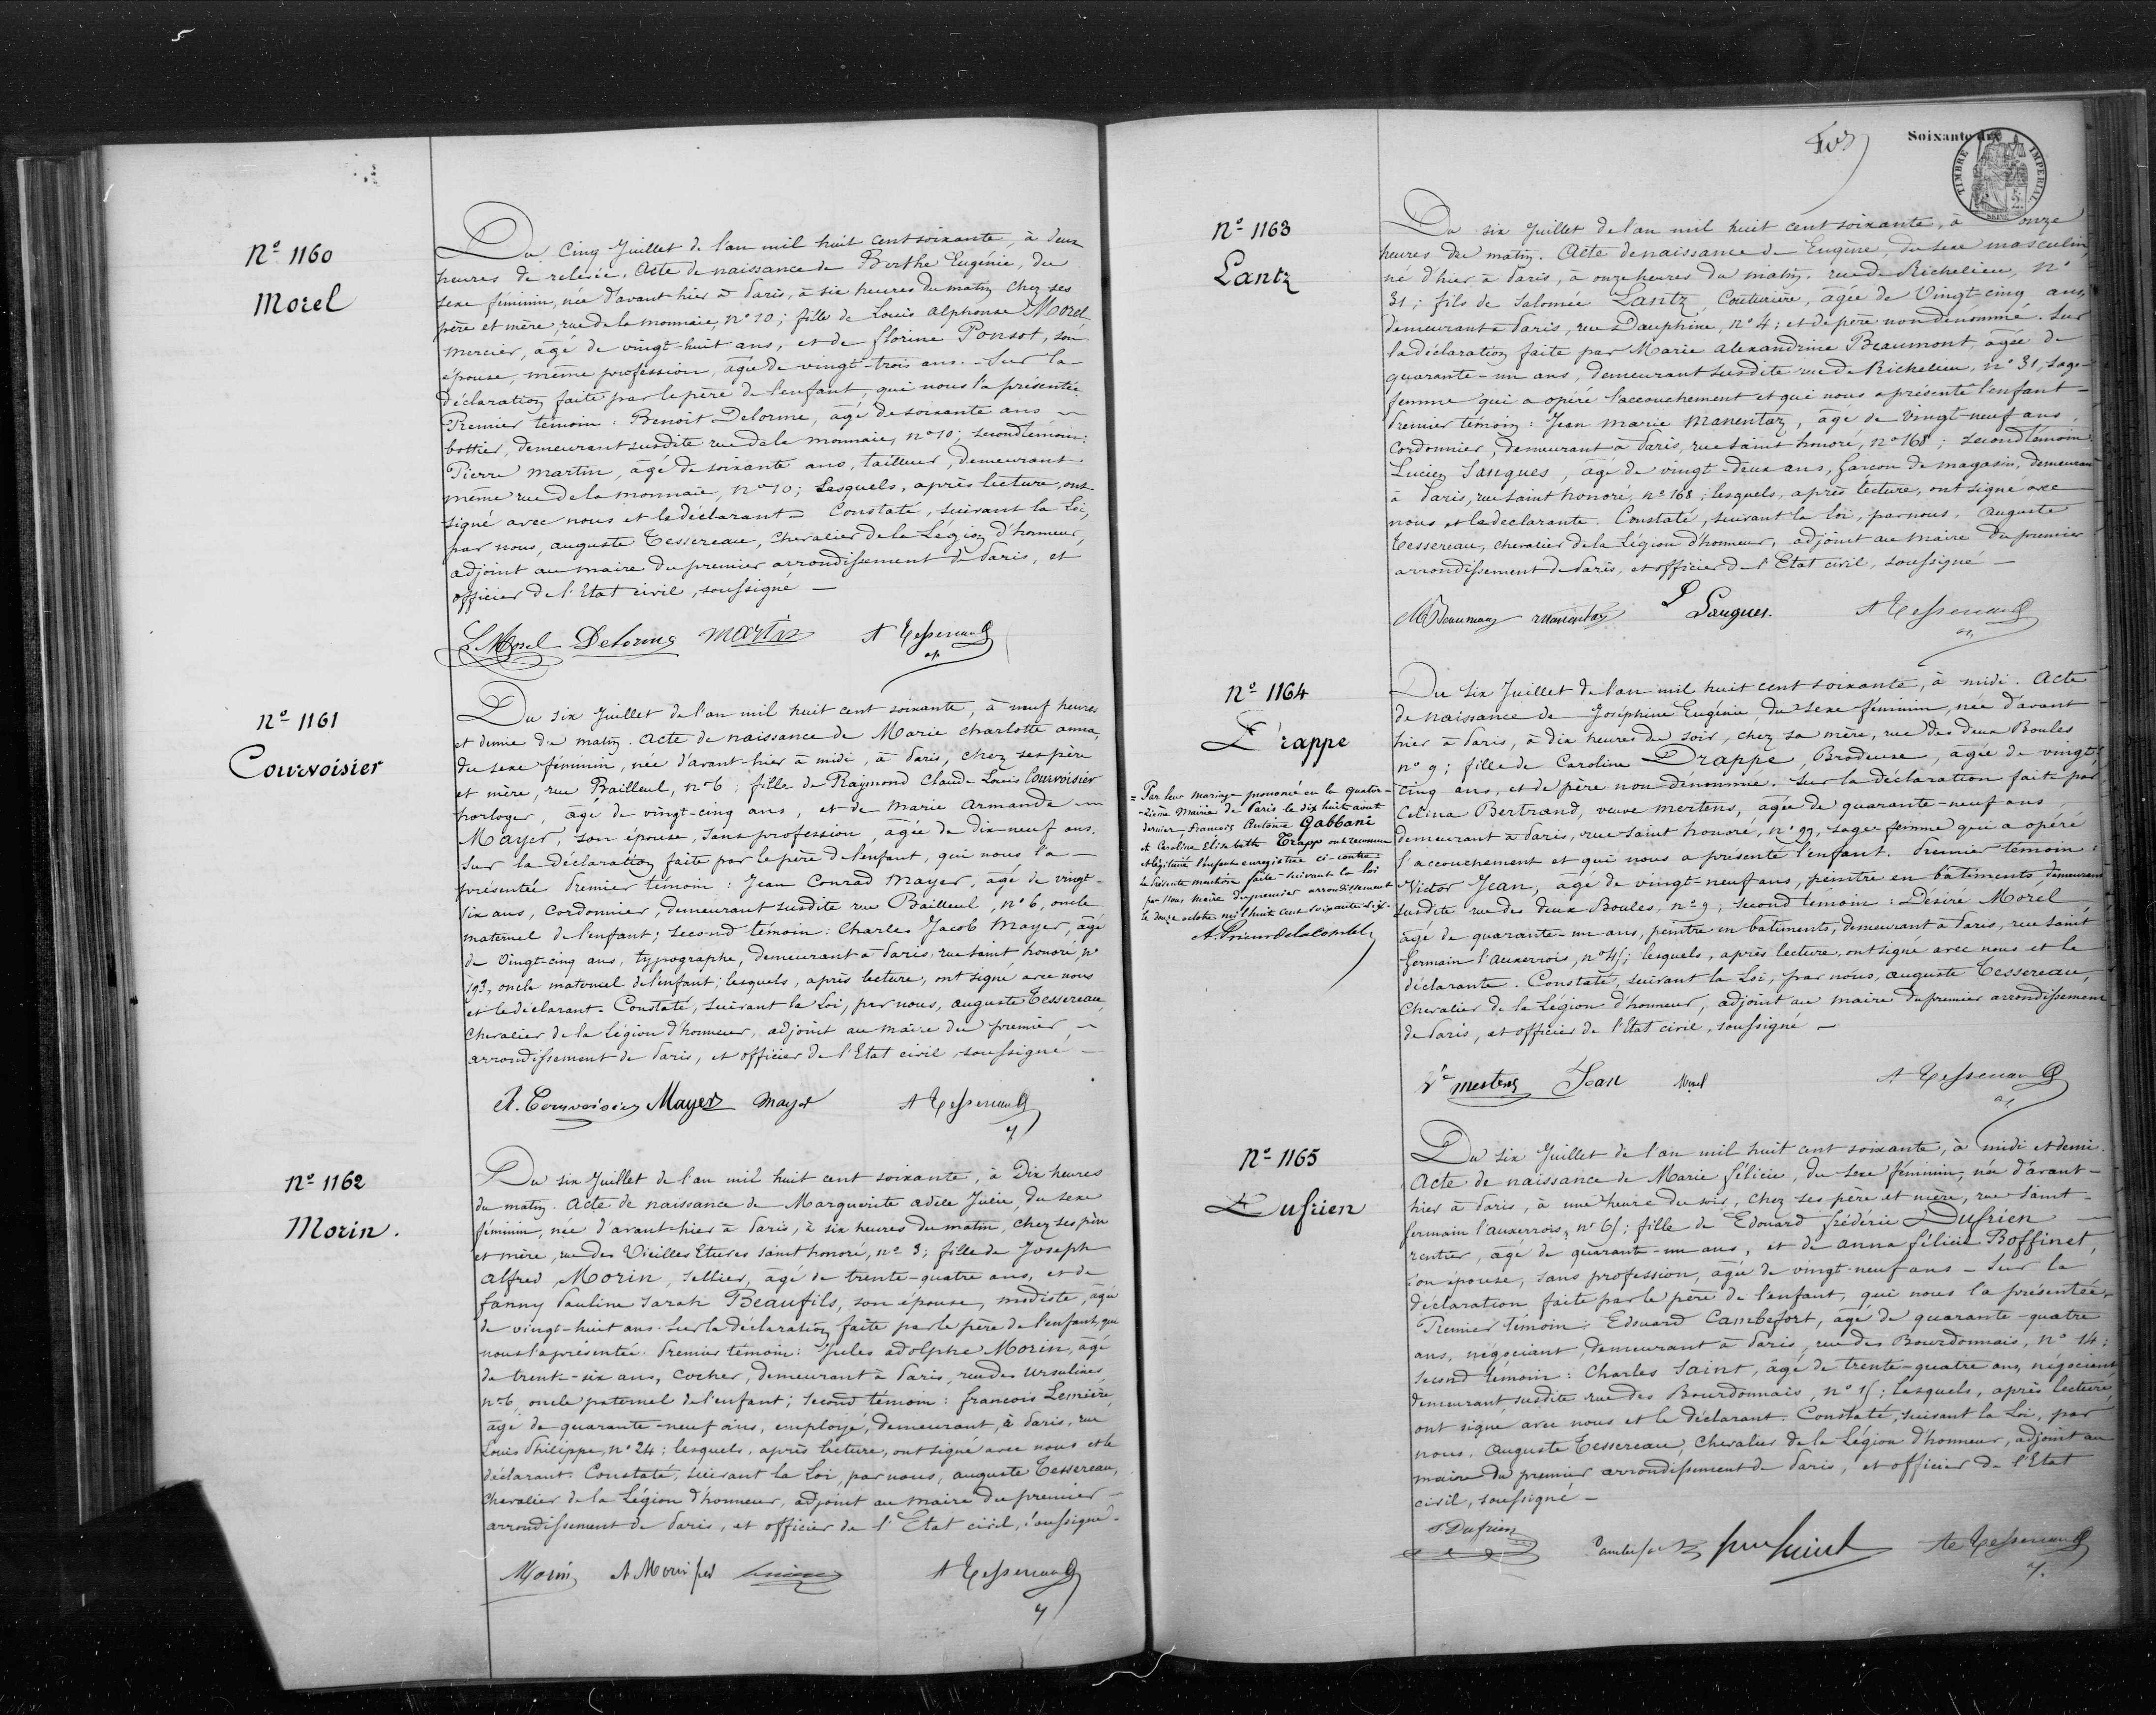 Nº 1160
Morel
Du Cinq Juillet de l'an mil huit cent soixante, à deux
heures de relevée. Acte de naissance de Berthe Eugénie, du
sexe féminin, née d'avant-hier à Paris, à six heures du matin chez ses
père et mère, rue de la monnaie, nº 10; fille de Louis alphonse Morel
mercier, âgé de vingt-huit ans, et de florine Ponsot, son
épouse, même profession, âgée de vingt-trois ans. - Sur la
déclaration faite par le père de l'enfant, qui nous l'a présentée.
Premier témoin: Benoit Delorme, âgé de soixante ans
bottier, demeurant susdite rue de la monnaie, nº 10; second témoin:
Pierre martin, âgé de soixante ans, tailleur, demeurant
même rue de la monnaie, nº 10; Lesquels, après lecture, ont
signé avec nous et le déclarant - Constaté, suivant la Loi,
par nous, auguste Tessereau, chevalier de la Légion d'honneur,
adjoint au maire du premier arrondissement de Paris, et
officier de l'Etat civil, soussigné -
L. Morel Delorme Martin A Tessereau
Nº 1161
Courvoisier
Du six Juillet de l'an mil huit cent soixante, à neuf heures
et demie du matin. Acte de naissance de Marie charlotte anna,
du sexe féminin, née d'avant-hier à midi, à Paris, chez ses père
et mère, rue Bailleul, nº 6; fille de Raymond Claude Louis Courvoisier
horloger, âgé de vingt-cinq ans, et de Marie Armande
Mayer, son épouse, sans profession, âgée de dix-neuf ans.
Sur la déclaration faite par le père de l'enfant, qui nous l'a -
présentée Premier témoin: Jean Conrad Mayer, âgé de vingt-
six ans, Cordonnier, demeurant susdite rue Bailleul, nº 6, oncle
maternel de l'enfant; second témoin: Charles Jacob Mayer, âgé
de Vingt-cinq ans, typographe, demeurant à Paris, rue saint honoré nº
193, oncle maternel de l'enfant; lesquels, après lecture, ont signé avec nous
et le déclarant - Constaté, suivant la Loi, par nous, auguste Tessereau,
Chevalier de la Légion d'honneur, adjoint au maire du premier
arrondissement de Paris, et officier de l'Etat civil, soussigné -
R. Courvoisier Mayer Mayer A Tessereau
Nº 1162
Morin.
Du six Juillet de l'an mil huit cent soixante, à Dix heures
du matin. Acte de naissance de Marguerite adèle Julie, du sexe
féminin, née d'avant-hier à Paris, à six heures du matin, chez ses père
et mère, rue des Vieilles Etuves saint honoré, nº 3; fille de Joseph
alfred Morin, sellier, âgé de trente-quatre ans, et de
fanny Pauline Sarah Beaufils, son épouse, modiste, âgée
de vingt-huit ans. Sur la déclaration faite par le père de l'enfant, qui
nous l'a présentée. Premier témoin: Jules adolphe Morin, âgé
de trente-six ans, cocher, demeurant à Paris, rue des Ursulines
nº 6, oncle paternel de l'enfant; second témoin: françois Lemière,
âgé de quarante-neuf ans, employé, demeurant, à Paris, rue
Louis Philippe, nº 24; lesquels, après lecture, ont signé avec nous et le
déclarant. Constaté, suivant la Loi, par nous, auguste Tessereau,
Chevalier de la Légion d'honneur, adjoint au maire du premier -
arrondissement de Paris, et officier de l'Etat civil, soussigné.
Morin A Morin A Tessereau
Soixante dix
TIMBRE IMPERIAL
SEINE
Nº 1163
Lantz
Du six Juillet de l'an mil huit cent soixante, à onze
heures du matin. Acte de naissance de Eugène, du sexe masculin,
né d'hier à Paris, à onze heures du matin. rue de Richelieu, Nº
31; fils de Salomée Lantz, Couturière, âgée de Vingt-cinq ans,
demeurant à Paris, rue Dauphine, nº 4; et de père non dénommé. Sur
la déclaration faite par Marie alexandrine Beaumont, âgée de
quarante-un ans, demeurant susdite rue de Richelieu, nº 31, sage-
femme qui a opéré l'accouchement et qui nous a présenté l'enfant -
Premier témoin: Jean marie Manentaz, âgé de vingt-neuf ans,
Cordonnier, demeurant à Paris, rue saint honoré, nº 168; second témoin
Lucien Saugues, âgé de vingt-deux ans, Garçon de magasin, demeurant
à Paris, rue saint honoré, nº 168; lesquels, après lecture, ont signé avec
nous et la déclarante. Constaté, suivant la loi, par nous, Auguste
Tessereau, chevalier de la Légion d'honneur, adjoint au maire du premier
arrondissement de Paris, et officier de l'Etat civil, soussigné -
Beaumont Manentaz L Saugues. A Tessereau
Nº 1164
Drappe
= Par leur mariage prononcé en la quator-
-zième Mairie de Paris le dix huit août
dernier, François Antoine Gabbani
et Caroline Elisabeth Trapp ont reconnu
et légitimé l'enfant enregistrée ci-contre.
la présente mention faite suivant la loi
par Nous Maire du premier arrondissement
le douze octobre mil huit cent soixante six.
Du six Juillet de l'an mil huit cent soixante, à midi. Acte
de naissance de Joséphine Eugénie, du sexe féminin, née d'avant
hier à Paris, à dix heures du soir, chez sa mère, rue des deux Boules
nº 9; fille de Caroline Drappe, Brodeuse, âgée de vingt-
cinq ans, et de père non dénommé. Sur la déclaration faite par
Célina Bertrand, veuve Mertens, âgée de quarante-neuf ans
demeurant à Paris, rue saint honoré, nº 99, sage-femme qui a opéré
l'accouchement et qui nous a présenté l'enfant. Premier témoin:
Victor Jean, âgé de vingt-neuf ans, peintre en bâtiments, demeurant
susdite rue des deux Boules, nº 9; second témoin: Désiré Morel
âgé de quarante-un ans, peintre en bâtiments, demeurant à Paris, rue saint
Germain l'auxerrois, nº 45; lesquels, après lecture, ont signé avec nous et la
déclarante. Constaté, suivant la Loi, par nous, auguste Tessereau,
Chevalier de la Légion d'honneur, adjoint au maire du premier arrondissement
de Paris, et officier de l'Etat civil, soussigné -
Vve Mertens Jean Morel A Tessereau
Nº 1165
Dufrien
Du six Juillet de l'an mil huit cent soixante, à midi et demi.
Acte de naissance de Marie félicie, du sexe féminin, née d'avant-
hier à Paris, à une heure du soir, chez ses père et mère, rue saint-
Germain l'auxerrois, nº 65; fille de Edouard frédéric Dufrien
rentier, âgé de quarante-un ans, et de anna félicie Boffinet,
son épouse, sans profession, âgée de vingt-neuf ans - Sur la
déclaration faite par le père de l'enfant, qui nous l'a présentée.
Premier témoin: Edouard Cambefort, âgé de quarante-quatre
ans, négociant, demeurant à Paris, rue des Bourdonnais, nº 14;
second témoin: Charles Saint, âgé de trente-quatre ans, négociant
demeurant susdite rue des Bourdonnais, nº 15; lesquels, après lecture,
ont signé avec nous et le déclarant. Constaté, suivant la Loi, par
nous, Auguste Tessereau, Chevalier de la Légion d'honneur, adjoint au
maire du premier arrondissement de Paris, et officier de l'Etat
civil, soussigné -
Dufrien Saint A Tessereau